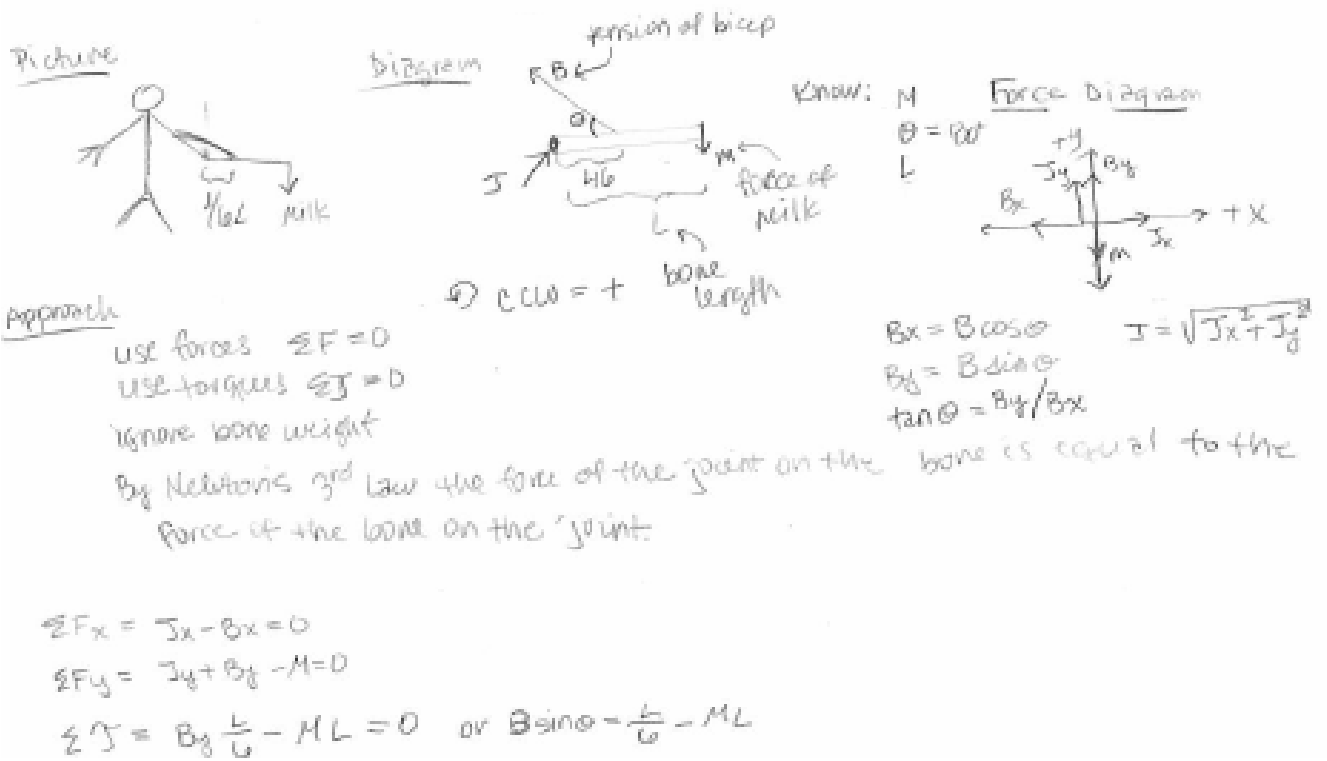 Picture
1/6L
Milk
Diagram
tension of bicep
B
θ
J
L/6
M
force of milk
L
bone length
CCW = +
Know: M
L
Force Diagram
+y
Jy
By
Bx
+x
Jx
M
Bx = Bcosθ
By = Bsinθ
tanθ = By/Bx
J = √Jx²+Jy²
Approach
use forces ΣF = 0
use torques ΣT = 0
ignore bone weight
By Newtons 3rd Law the force of the joint on the bone is equal to the
force of the bone on the joint.
ΣFx = Jx - Bx = 0
ΣFy = Jy + By - M = 0
ΣT = By L/6 - ML = 0 or Bsinθ - L/6 - ML